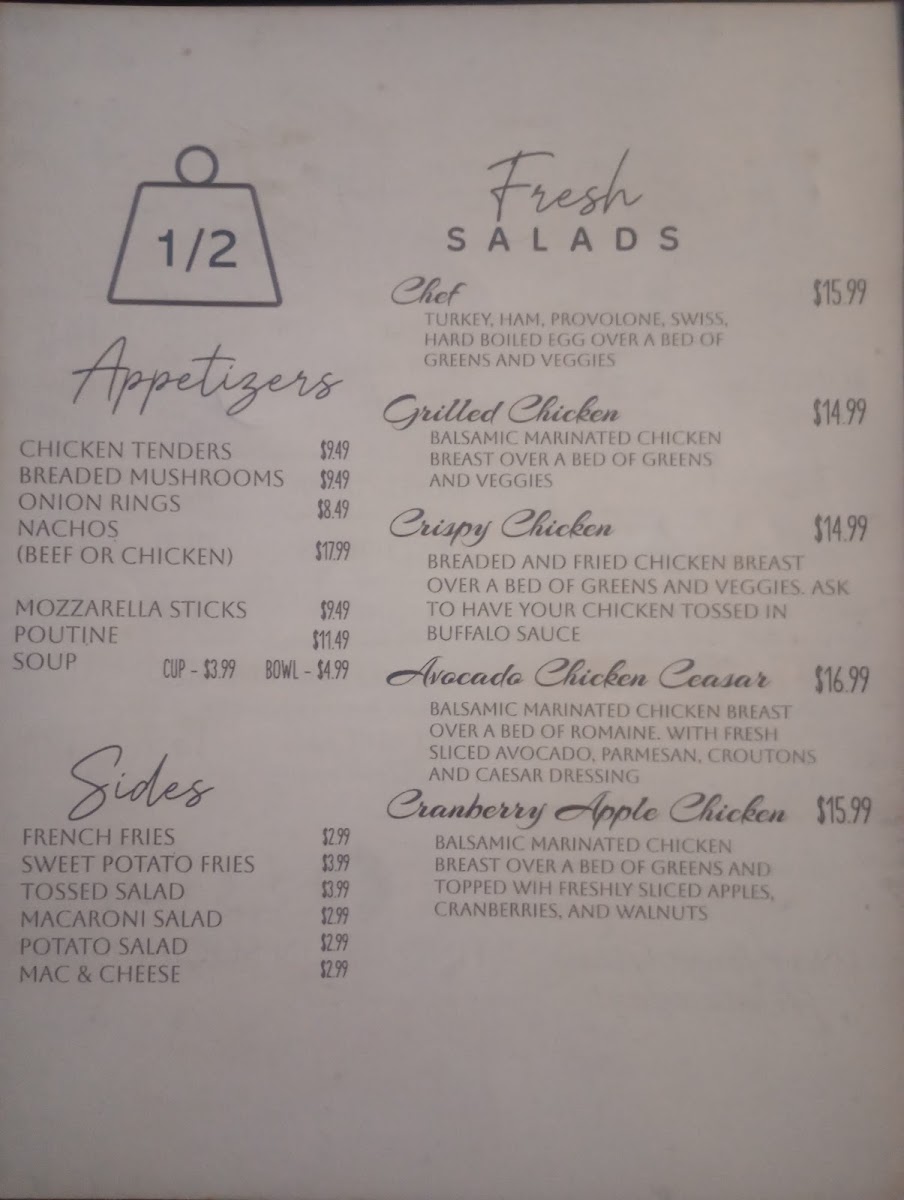 1/2
Appetizers
CHICKEN TENDERS $9.49
BREADED MUSHROOMS $9.49
ONION RINGS $8.49
NACHOS
(BEEF OR CHICKEN) $17.99
MOZZARELLA STICKS $9.49
POUTINE $11.49
SOUP CUP - $3.99 BOWL - $4.99
Sides
FRENCH FRIES $2.99
SWEET POTATO FRIES $3.99
TOSSED SALAD $3.99
MACARONI SALAD $2.99
POTATO SALAD $2.99
MAC & CHEESE $2.99
Fresh
SALADS
Chef $15.99
TURKEY, HAM, PROVOLONE, SWISS,
HARD BOILED EGG OVER A BED OF
GREENS AND VEGGIES
Grilled Chicken $14.99
BALSAMIC MARINATED CHICKEN
BREAST OVER A BED OF GREENS
AND VEGGIES
Crispy Chicken $14.99
BREADED AND FRIED CHICKEN BREAST
OVER A BED OF GREENS AND VEGGIES. ASK
TO HAVE YOUR CHICKEN TOSSED IN
BUFFALO SAUCE
Avocado Chicken Ceasar $16.99
BALSAMIC MARINATED CHICKEN BREAST
OVER A BED OF ROMAINE. WITH FRESH
SLICED AVOCADO, PARMESAN, CROUTONS
AND CAESAR DRESSING
Cranberry Apple Chicken $15.99
BALSAMIC MARINATED CHICKEN
BREAST OVER A BED OF GREENS AND
TOPPED WIH FRESHLY SLICED APPLES,
CRANBERRIES, AND WALNUTS